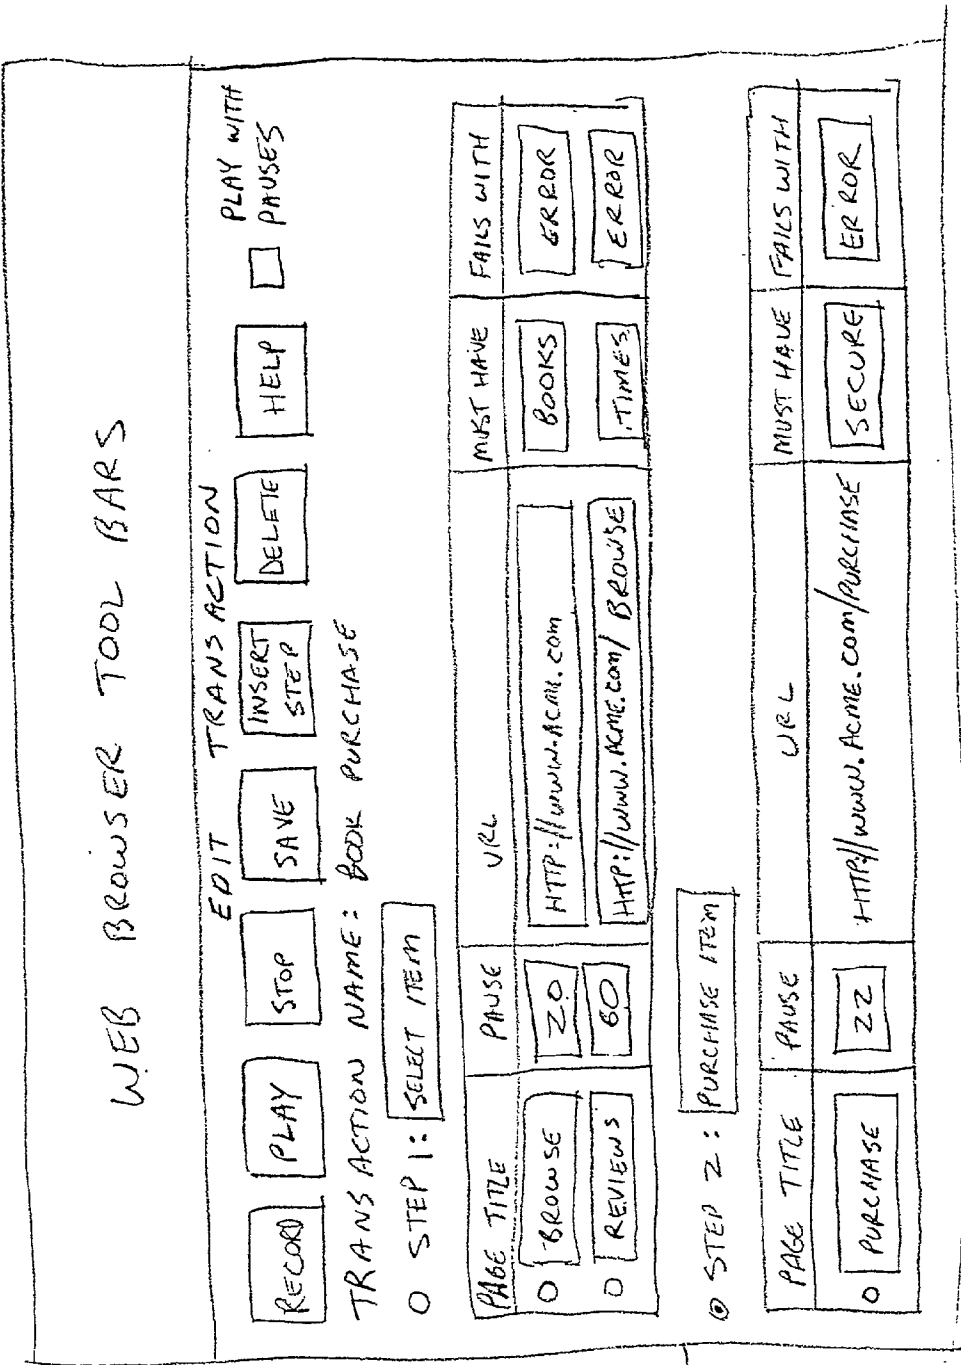 WEB BROWSER TOOL BARS
EDIT TRANSACTION
RECORD PLAY STOP SAVE INSERT STEP DELETE HELP PLAY WITH PAUSES
TRANSACTION NAME: BOOK PURCHASE
STEP 1: SELECT ITEM
PAGE TITLE PAUSE URL MUST HAVE FAILS WITH
BROWSE 20 HTTP://WWW.ACME.COM BOOKS ERROR
REVIEWS 60 HTTP://WWW.ACME.COM/BROWSE TIMES ERROR
STEP 2: PURCHASE ITEM
PAGE TITLE PAUSE URL MUST HAVE FAILS WITH
PURCHASE 22 HTTP://WWW.ACME.COM/PURCHASE SECURE ERROR